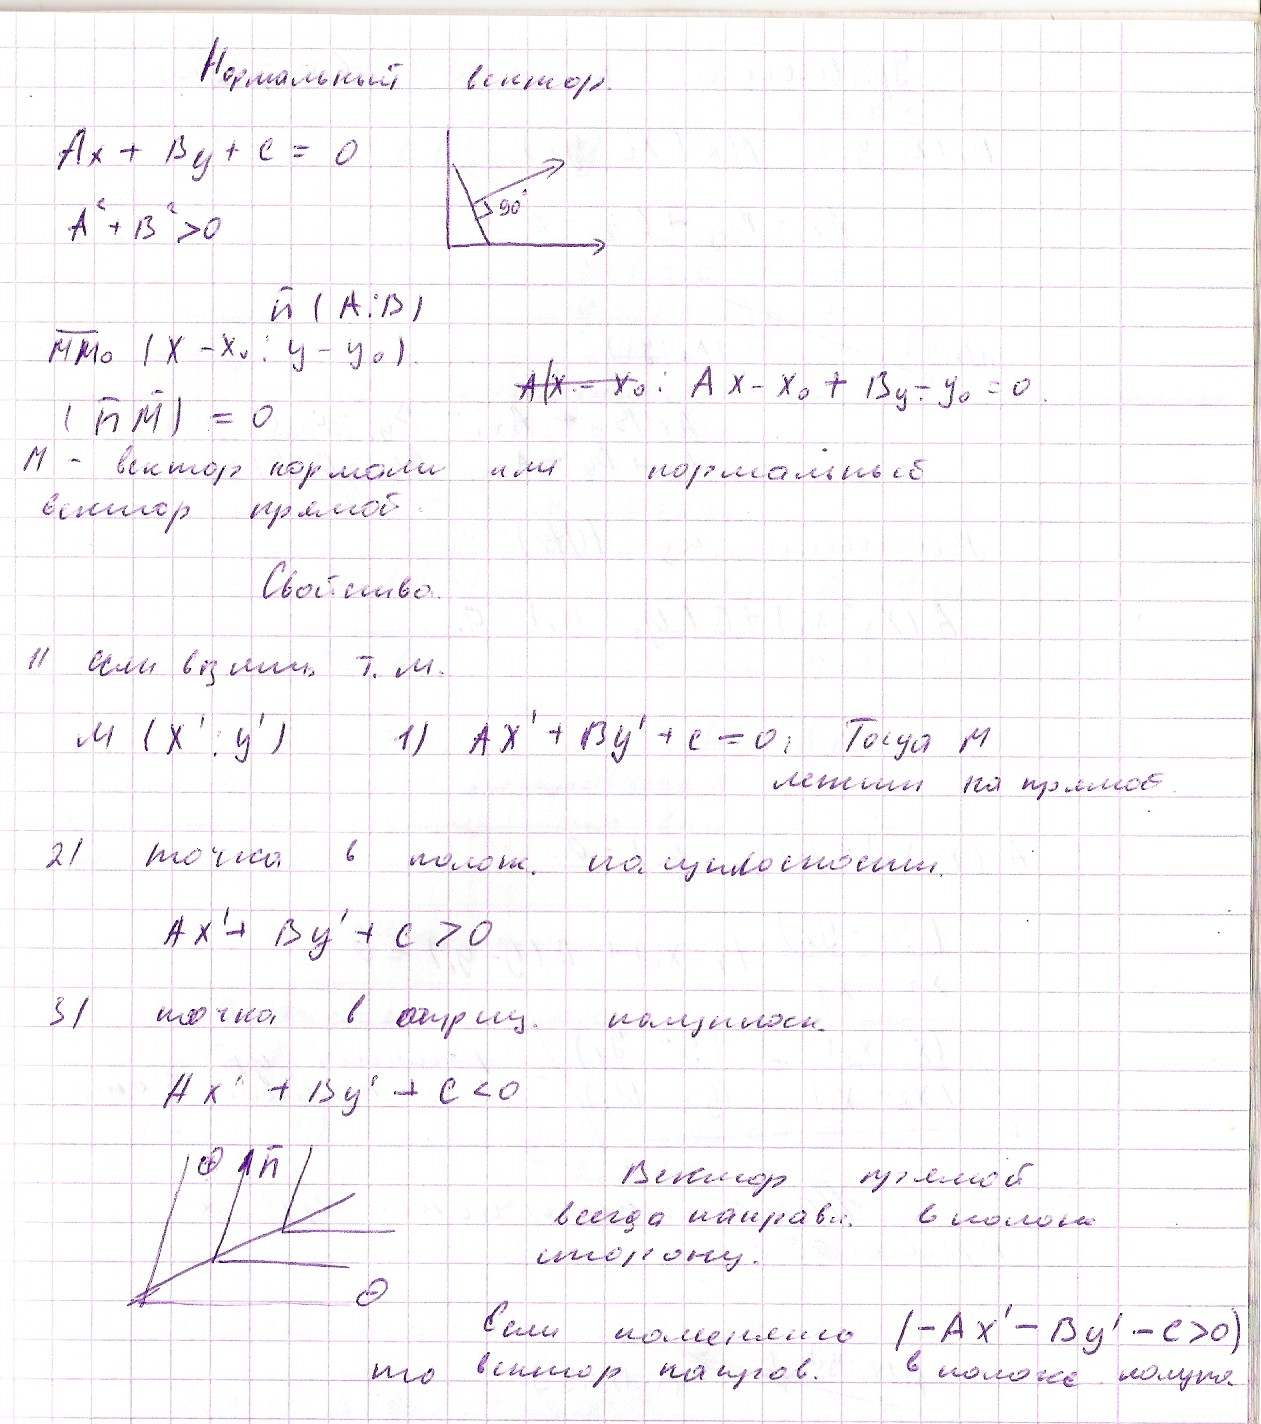 Нормальный вектор.
Ax + By + C = 0
A² + B² > 0
90°
n̄ (A; B)
M̅M̅₀ (x - x₀; y - y₀).
A(x - x₀; Ax - x₀ + By - y₀ = 0.
(n̄ M̄) = 0
М - вектор нормали или нормальный
вектор прямой.
Свойства.
1) Если взять т. М.
M (x'; y') 1) Ax' + By' + C = 0; Тогда М
лежит на прямой.
2) точка в полож. полуплоскости.
Ax' + By' + C > 0
3) точка в отриц. полуплоск.
Ax' + By' + C < 0
⊕ n̄
⊖
Вектор прямой
всегда направл. в полож
сторону.
Если поменять (-Ax' - By' - C > 0)
то вектор направ. в полож полупл